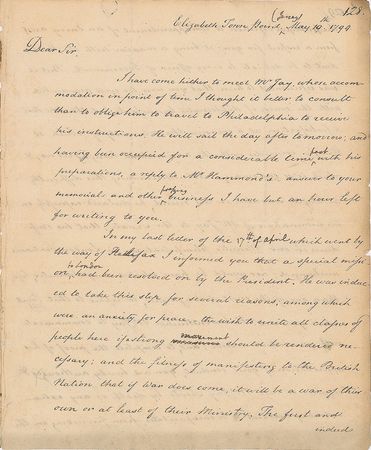 128.
Elizabeth Town Point, (Jersey) May 10th 1794.
Dear Sir.
I have come hither to meet Mr Jay, whose accom-
modation in point of time I thought it better to consult
than to oblige him to travel to Philadelphia to receive
his instructions. He will sail the day after tomorrow; and
having been occupied for a considerable time past with his
preparations, a reply to Mr Hammond's answer to your
memorial and other pressing business I have but an hour left
for writing to you.
In my last letter of the 17th of April which went by
the way of Halifax I informed you that a special miss-
ion, to London had been resolved on by the President. He was induc-
ed to take this step for several reasons, among which
were an anxiety for peace, the wish to unite all classes of
people here if strong measures movement should be rendered ne-
cessary; and the fitness of manifesting to the British
Nation that if War does come, it will be a war of their
own or at least of their Ministry. The first and
indeed